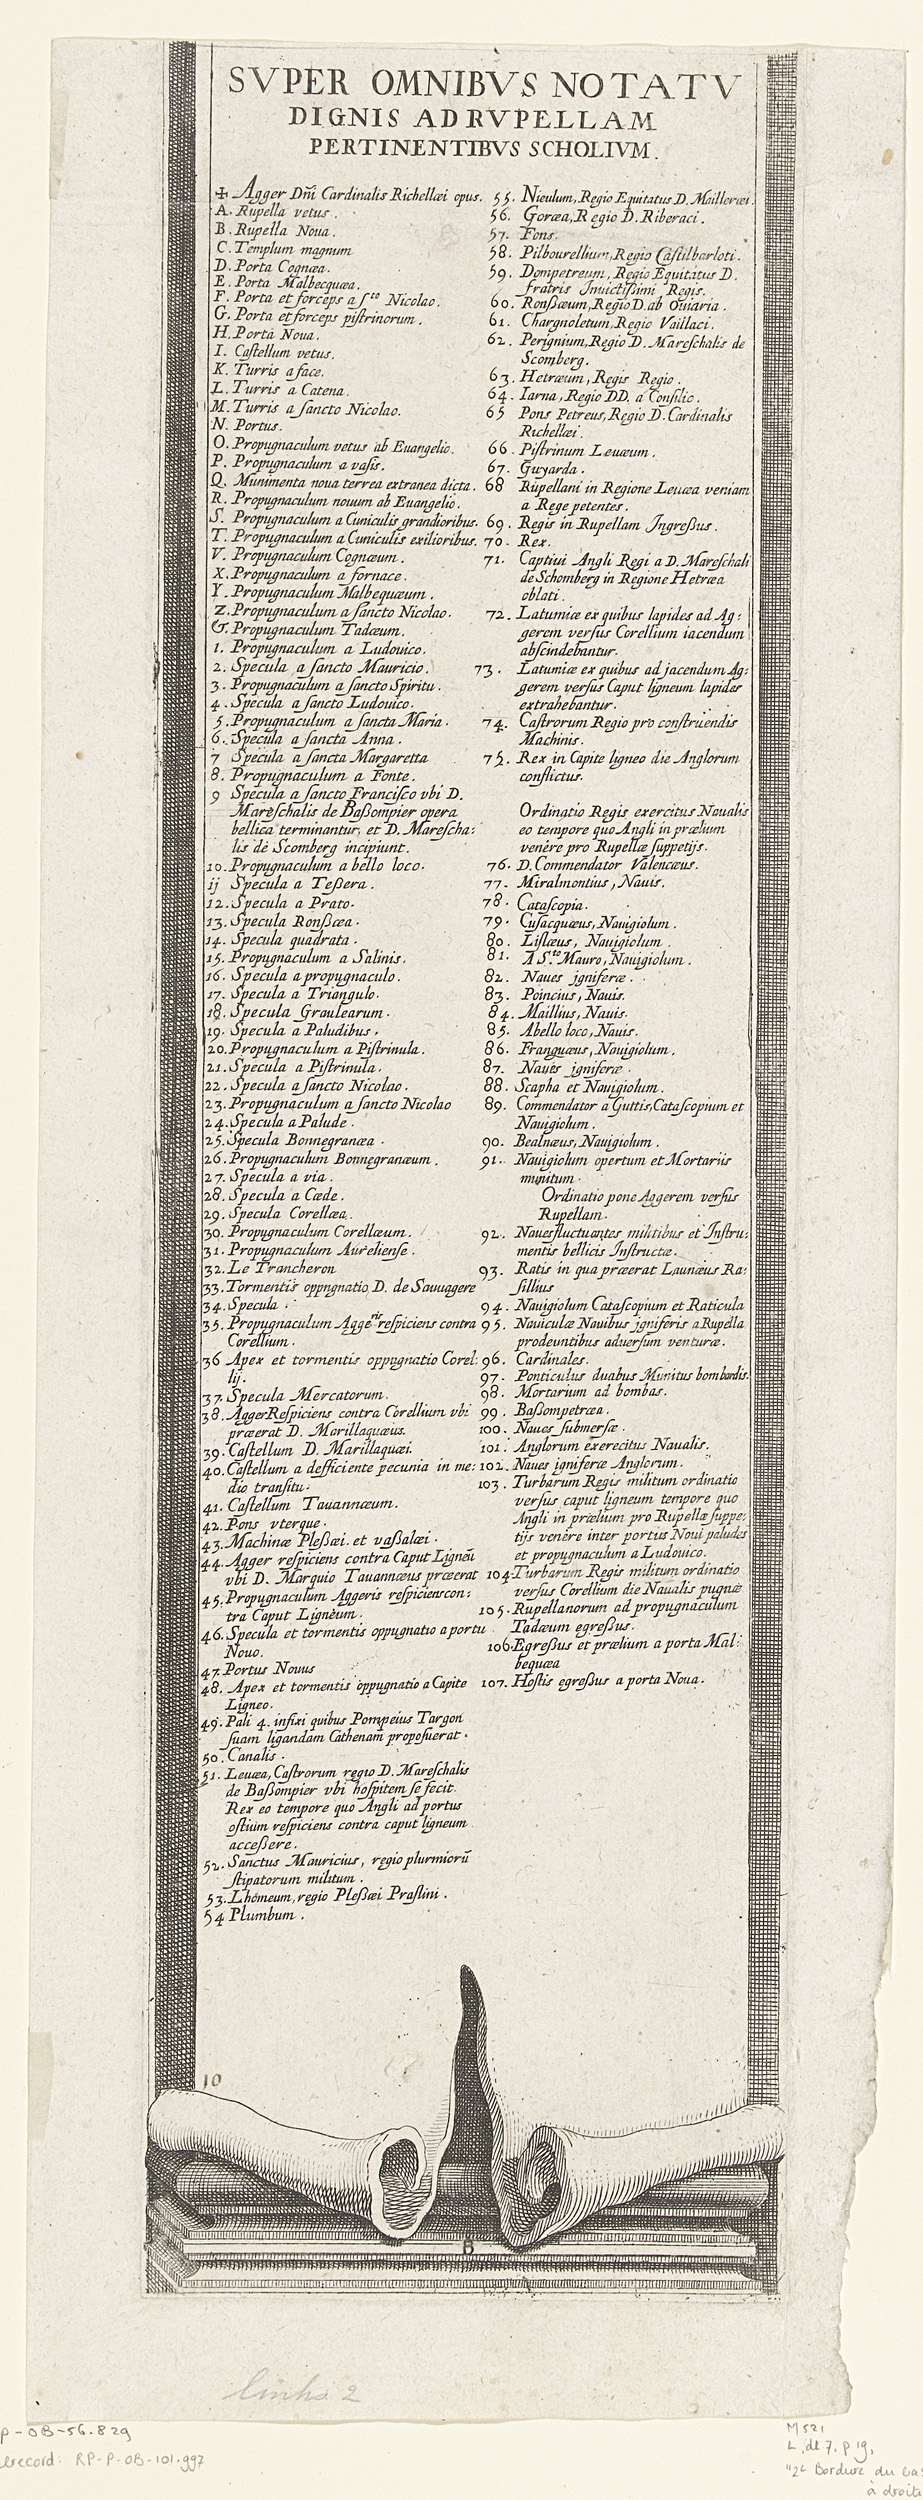 SVPER OMNIBVS NOTATV
DIGNIS AD RVPELLAM
PERTINENTIBVS SCHOLIVM.
✢ Agger Dn̄i Cardinalis Richellæi opus.
A. Rupella vetus.
B. Rupella Noua.
C. Templum magnum
D. Porta Cognæa.
E. Porta Malbecquæa.
F. Porta et forceps a Sto Nicolao.
G. Porta et forceps pistrinorum.
H. Porta Noua.
I. Castellum vetus.
K. Turris a face.
L. Turris a Catena.
M. Turris a sancto Nicolao.
N. Portus.
O. Propugnaculum vetus ab Euangelio.
P. Propugnaculum a vasis.
Q. Munimenta noua terrea extranea dicta.
R. Propugnaculum nouum ab Euangelio.
S. Propugnaculum a Cuniculis grandioribus.
T. Propugnaculum a Cuniculis exilioribus.
V. Propugnaculum Cognæum.
X. Propugnaculum a fornace.
Y. Propugnaculum Malbequæum.
Z. Propugnaculum a sancto Nicolao.
&. Propugnaculum Tadæum.
1. Propugnaculum a Ludouico.
2. Specula a sancto Mauricio.
3. Propugnaculum a sancto Spiritu.
4. Specula a sancto Ludouico.
5. Propugnaculum a sancta Maria.
6. Specula a sancta Anna.
7 Specula a sancta Margaretta
8. Propugnaculum a Fonte.
9 Specula a sancto Francisco vbi D.
Mareschalis de Baßompier opera
bellica terminantur, et D. Marescha:
lis de Scomberg incipiunt.
10. Propugnaculum a bello loco.
ij Specula a Teßera.
12. Specula a Prato.
13. Specula Ronßæa.
14. Specula quadrata.
15. Propugnaculum a Salinis.
16. Specula a propugnaculo.
17. Specula a Triangulo.
18. Specula Groulearum.
19. Specula a Paludibus.
20. Propugnaculum a Pistrinula.
21. Specula a Pistrinula.
22. Specula a sancto Nicolao.
23. Propugnaculum a sancto Nicolao
24. Specula a Palude.
25. Specula Bonnegranæa.
26. Propugnaculum Bonnegranæum.
27. Specula a via.
28. Specula a Cæde.
29. Specula Corellæa.
30. Propugnaculum Corellæum.
31. Propugnaculum Aureliense.
32. Le Trancheron
33. Tormentis oppngnatio D. de Sauuagere
34. Specula.
35. Propugnaculum Aggeris respiciens contra
Corellium.
36 Apex et tormentis oppugnatio Corel:
lij.
37. Specula Mercatorum.
38. Agger Respiciens contra Corellium vbi
præerat D. Marillaquæus.
39. Castellum D. Marillaquæi.
40. Castellum a defficiente pecunia in me:
dio transitu.
41. Castellum Tauannæum.
42. Pons vterque.
43. Machinæ Pleßæi et vaßalæi.
44. Agger respiciens contra Caput Ligneū
vbi D. Marquio Tauannæus præerat
45. Propugnaculum Aggeris respiciens con:
tra Caput Ligneum.
46. Specula et tormentis oppugnatio a portu
Nouo.
47. Portus Nouus
48. Apex et tormentis oppugnatio a Capite
Ligneo.
49. Pali 4. infixi quibus Pompeius Targon
suam ligandam Cathenam proposuerat.
50. Canalis.
51. Leuæa, Castrorum regio D. Mareschalis
de Baßompier vbi hospitem se fecit
Rex eo tempore quo Angli ad portus
ostium respiciens contra caput ligneum
acceßere.
52. Sanctus Mauricius, regio plurmiorū
stipatorum militum.
53. Lhomeum, regio Pleßæi Praslini.
54 Plumbum.
55. Nieulum, Regio Equitatus D. Moilleræi.
56. Goræa, Regio D. Riberaci.
57. Fons.
58. Pilbourellium, Regio Castilbarloti.
59. Dompetreum, Regio Equitatus D.
fratris Inuictißimi Regis.
60. Ronßæum, Regio D. ab Ouiaria.
61. Chargnoletum, Regio Vaillaci.
62. Perignium, Regio D. Mareschalis de
Scomberg.
63. Hetræum, Regis Regio.
64. Iarna, Regio DD. a Consilio.
65 Pons Petreus, Regio D. Cardinalis
Richellæi.
66. Pistrinum Leuæum.
67. Guyarda.
68 Rupellani in Regione Leuæa veniam
a Rege petentes.
69. Regis in Rupellam Ingreßus.
70. Rex.
71. Captiui Angli Regi a D. Mareschali
de Schomberg in Regione Hetræa
oblati.
72. Latumiæ ex quibus lapides ad Ag:
gerem versus Corellium iacendum
abscindebantur.
73. Latumiæ ex quibus ad jacendum Ag:
gerem versus Caput ligneum lapides
extrahebantur.
74. Castrorum Regio pro construendis
Machinis.
75. Rex in Capite ligneo die Anglorum
conflictus.
Ordinatio Regis exercitus Naualis
eo tempore quo Angli in prælium
venêre pro Rupellæ suppetijs.
76. D. Commendator Valencæus.
77. Miralmontius, Nauis.
78. Catascopia.
79. Cusacquæus, Nauigiolum.
80. Lislæus, Nauigiolum.
81. A Sto Mauro, Nauigiolum.
82. Naues igniferæ.
83. Poincius, Nauis.
84. Maillius, Nauis.
85. Abello loco, Nauis.
86. Franquæus, Nauigiolum.
87. Naues igniferæ.
88. Scapha et Nauigiolum.
89. Commendator a Guttis, Catascopium et
Nauigiolum.
90. Bealnæus, Nauigiolum.
91. Nauigiolum opertum et Mortariis
munitum.
Ordinatio pone Aggerem versus
Rupellam.
92. Naues fluctuantes militibus et Instru:
mentis bellicis Instructæ.
93. Ratis in qua præerat Launæus Ra:
sillius
94. Nauigiolum Catascopium et Raticula
95. Nauiculæ Nauibus igniferis a Rupella
prodeuntibus aduersum venturæ.
96. Cardinales.
97. Ponticulus duabus Munitus bombardis.
98. Mortarium ad bombas.
99. Baßompetræa.
100. Naues submersæ.
101. Anglorum exerecitus Naualis.
102. Naues igniferæ Anglorum.
103. Turbarum Regis militum ordinatio
versus caput ligneum tempore quo
Angli in prælium pro Rupellæ suppe:
tijs venêre inter portus Noui paludes
et propugnaculum a Ludouico.
104. Turbarum Regis militum ordinatio
versus Corellium die Naualis pugnæ
105. Rupellanorum ad propugnaculum
Tadæum egreßus.
106. Egreßus et prælium a porta Mal:
bequæa
107. Hostis egreßus a porta Noua.
10
B
links 2
P-OB-56.829
record: RP-P-OB-101.997
M 521
L. dl 7. p 19,
"2e Bordure du bas
à droite